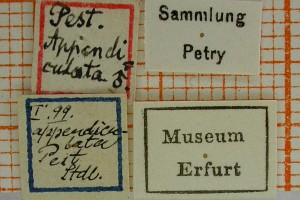 Pest.
Appendi
culata ♂
Sammlung
Petry
I. 99.
appendicu-
lata
Pest
Stdl.
Museum
Erfurt